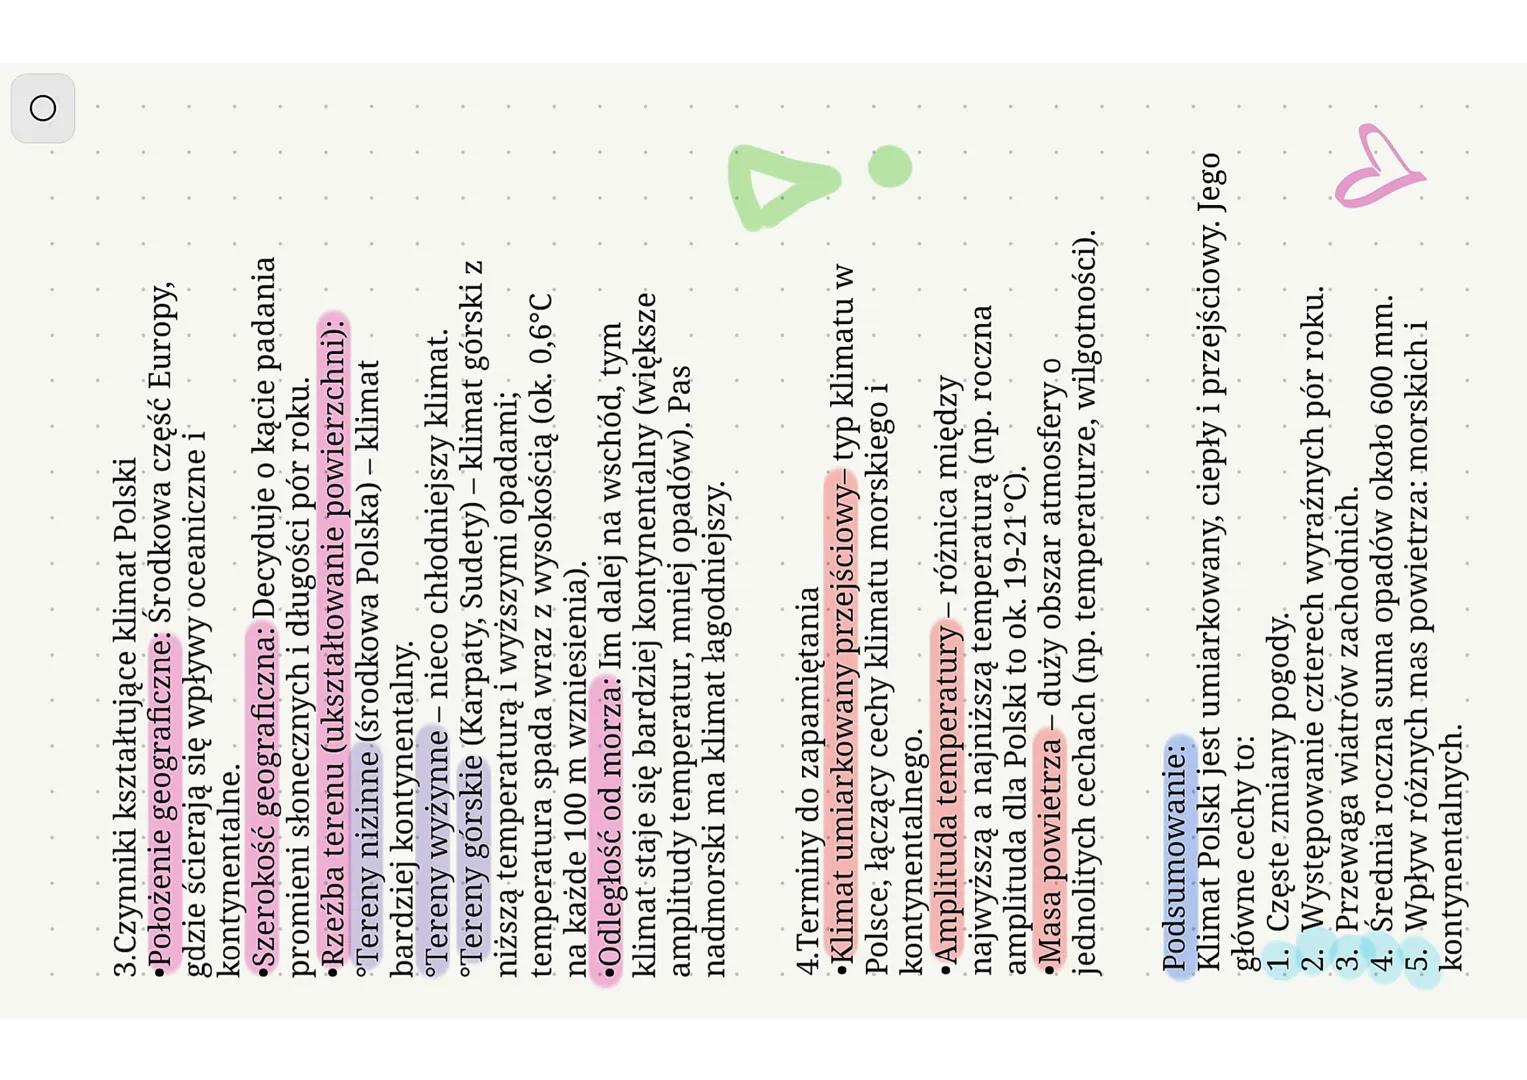 3.Czynniki kształtujące klimat Polski
•Położenie geograficzne: Środkowa część Europy,
gdzie ścierają się wpływy oceaniczne i
kontynentalne.
•Szerokość geograficzna: Decyduje o kącie padania
promieni słonecznych i długości pór roku.
•Rzeźba terenu (ukształtowanie powierzchni):
°Tereny nizinne (środkowa Polska) – klimat
bardziej kontynentalny.
°Tereny wyżynne – nieco chłodniejszy klimat.
°Tereny górskie (Karpaty, Sudety) – klimat górski z
niższą temperaturą i wyższymi opadami;
temperatura spada wraz z wysokością (ok. 0,6°C
na każde 100 m wzniesienia).
•Odległość od morza: Im dalej na wschód, tym
klimat staje się bardziej kontynentalny (większe
amplitudy temperatur, mniej opadów). Pas
nadmorski ma klimat łagodniejszy.
4.Terminy do zapamiętania
•Klimat umiarkowany przejściowy– typ klimatu w
Polsce, łączący cechy klimatu morskiego i
kontynentalnego.
•Amplituda temperatury – różnica między
najwyższą a najniższą temperaturą (np. roczna
amplituda dla Polski to ok. 19-21°C).
•Masa powietrza – duży obszar atmosfery o
jednolitych cechach (np. temperaturze, wilgotności).
Podsumowanie:
Klimat Polski jest umiarkowany, ciepły i przejściowy. Jego
główne cechy to:
1. Częste zmiany pogody.
2. Występowanie czterech wyraźnych pór roku.
3. Przewaga wiatrów zachodnich.
4. Średnia roczna suma opadów około 600 mm.
5. Wpływ różnych mas powietrza: morskich i
kontynentalnych.